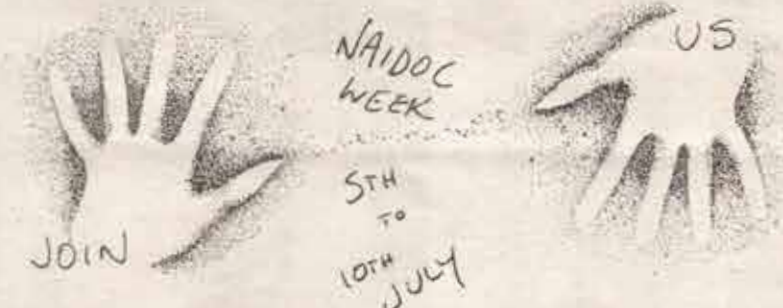 JOIN
NAIDOC
WEEK
5TH
TO
10TH
JULY
US